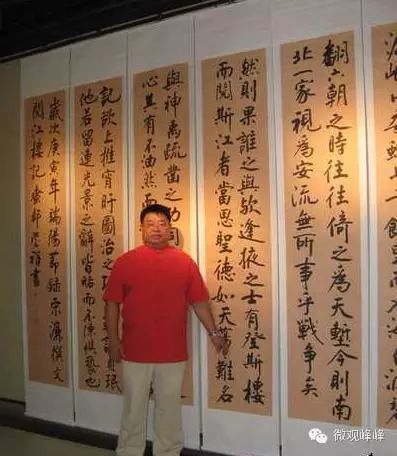 翻六朝之時往往倚之為天塹今則南
北一家視為安流無所事乎戰爭矣
然則果誰之與歟逢掖之士有登斯樓
而閱斯江者當思聖德如天蕩難名
與神禹疏鑿之功
心其有不油然而
記欲上推宵旰圖治之珉
他若留連光景之辭皆略而不陳懼褻也
歲次庚寅年瑞陽節錄宋濂撰文
閱江樓記 書
微观峰峰